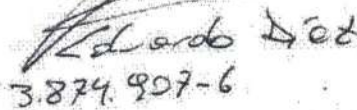 Eduardo Díez
3.874.907-6